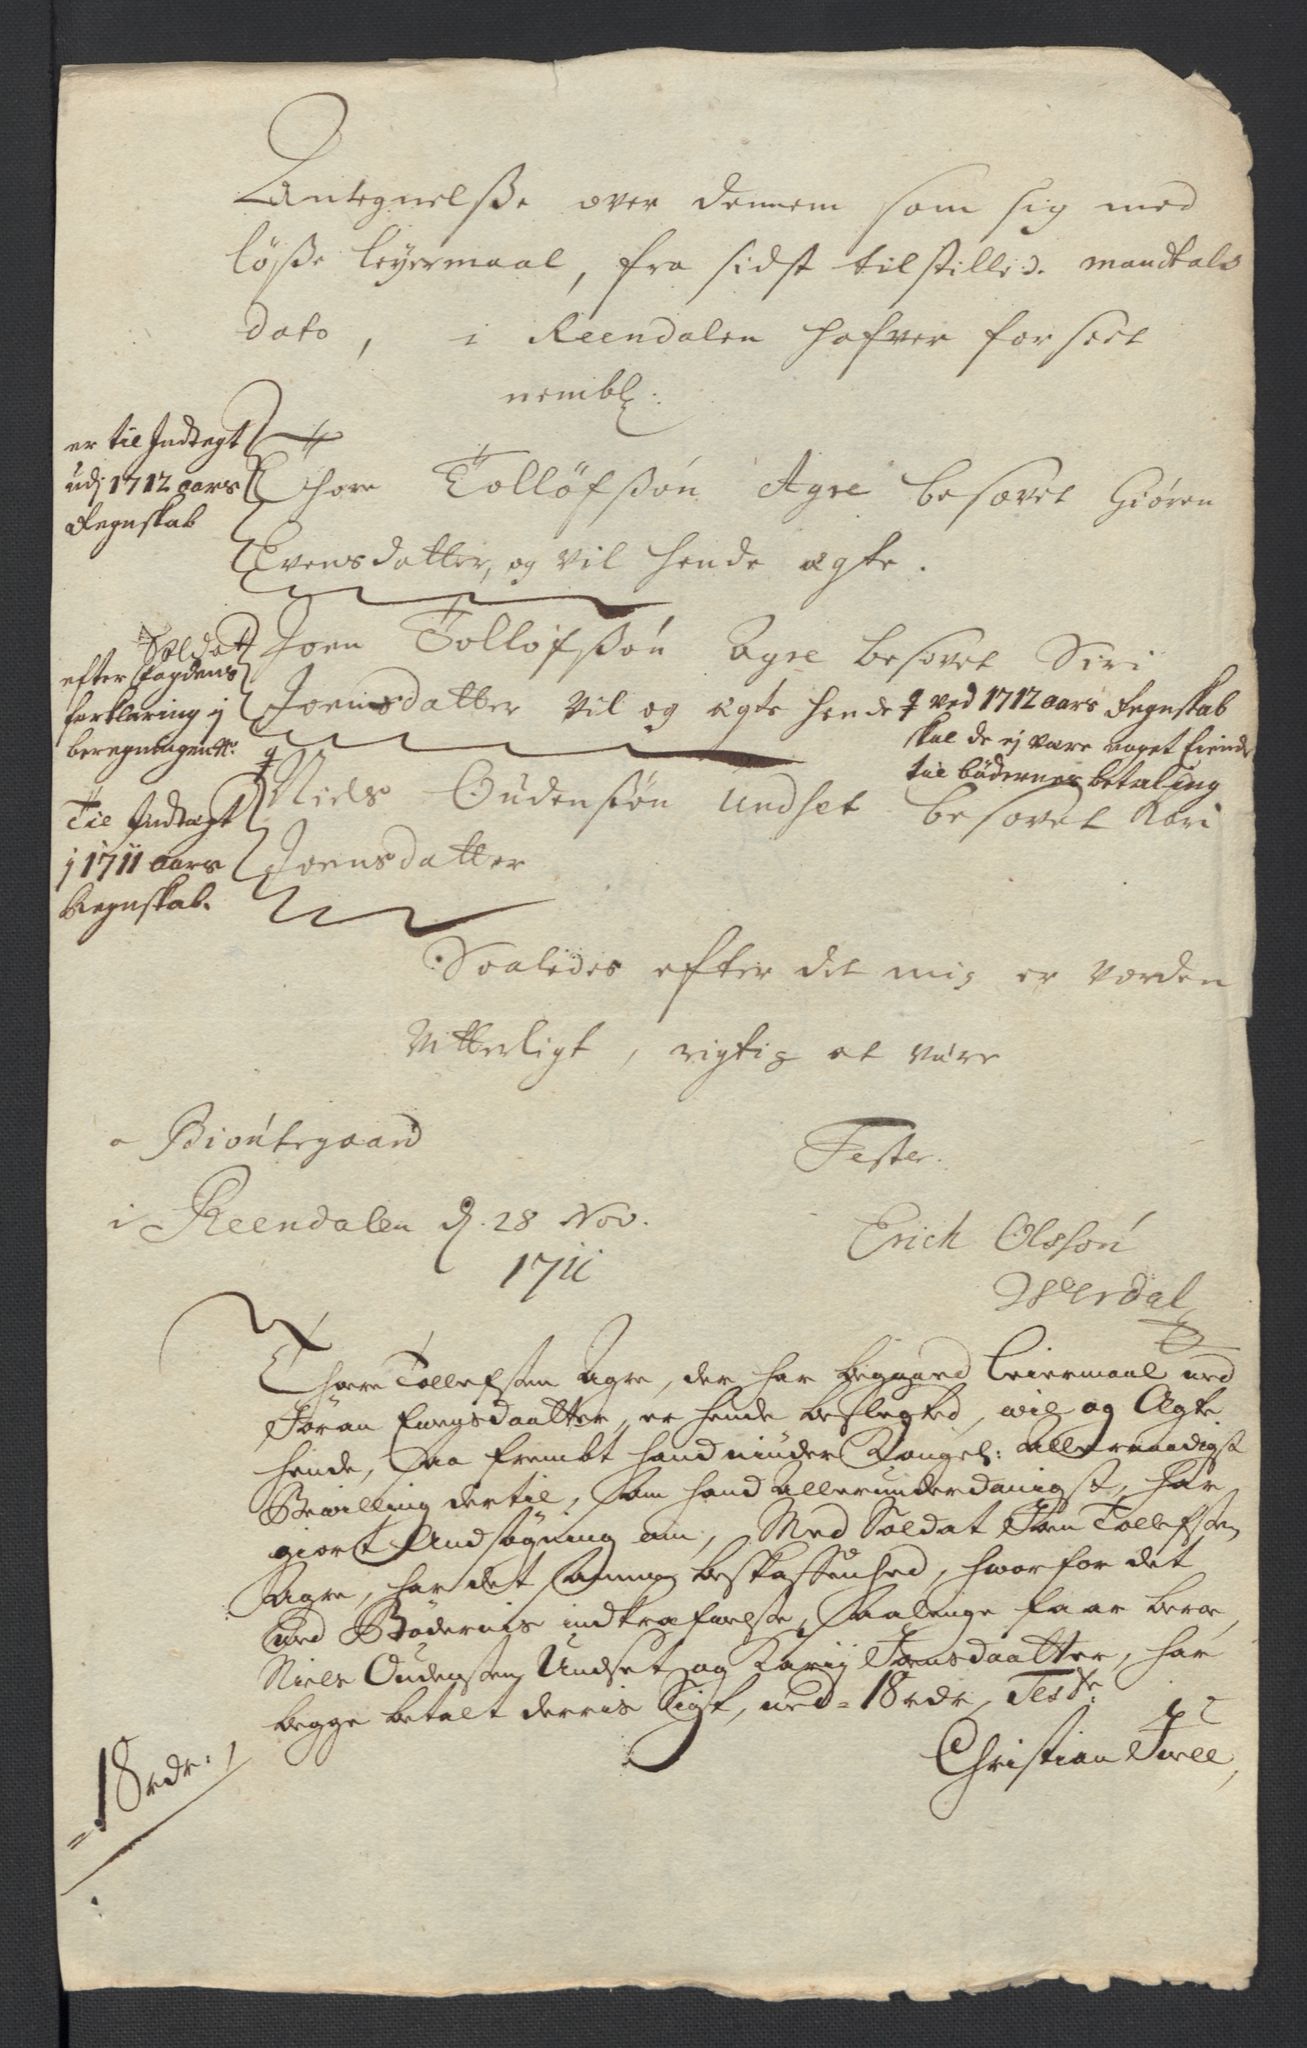 Antegnelsse over dennem som sig med
løsse leyermaal, fra sidst tilstilled mandtals
dato, i Reendalen hafver forseet
nembl:
er til Indtegt
udj 1712 aars
Regnskab
Thore Tolløfssøn Agre besovet Giøren
Evensdatter, og vil hende ægte.
Soldat
efter fogdens
forklaring j
beregningen
Joen Tolløfssøn Agre besovet Siri
Joensdatter vil og ægte hende
ved 1712 aars Regnskab
skal de ej være noget fiende
til bødernes betaling
Til Indtægt
j 1711 aars
Regnskab.
Niels Oudenssøn Undset besovet Kari
Joensdatter
Saaledes efter det mig er vorden
Vitterligt, rigtig at være
i Reendalen d. 28 Nov.
1711
Tester.
Erich Olssøn
Werdal
Thore Tollefsen Agre, der har begaaed Leiermaal med
Jøran Evensdaatter, er hende beslegted, wil og Ægte
hende, saa frembt hand niuder Kongel: allernaadigst
Bewilling dertil, som hand allerunderdanigst, har
giort Andsøgning om, Med Soldat Joen Tollefsen
Agre, har det samme beskaffenhed, hworfor det
med Bødernis indkræfvelse, saalenge faar beroe,
Niels Oudensen Undset og Karij Joensdaatter, har
begge betalt derris Sigt, med = 18 rdr, Test:
Christian Juell
= 18 rdr: